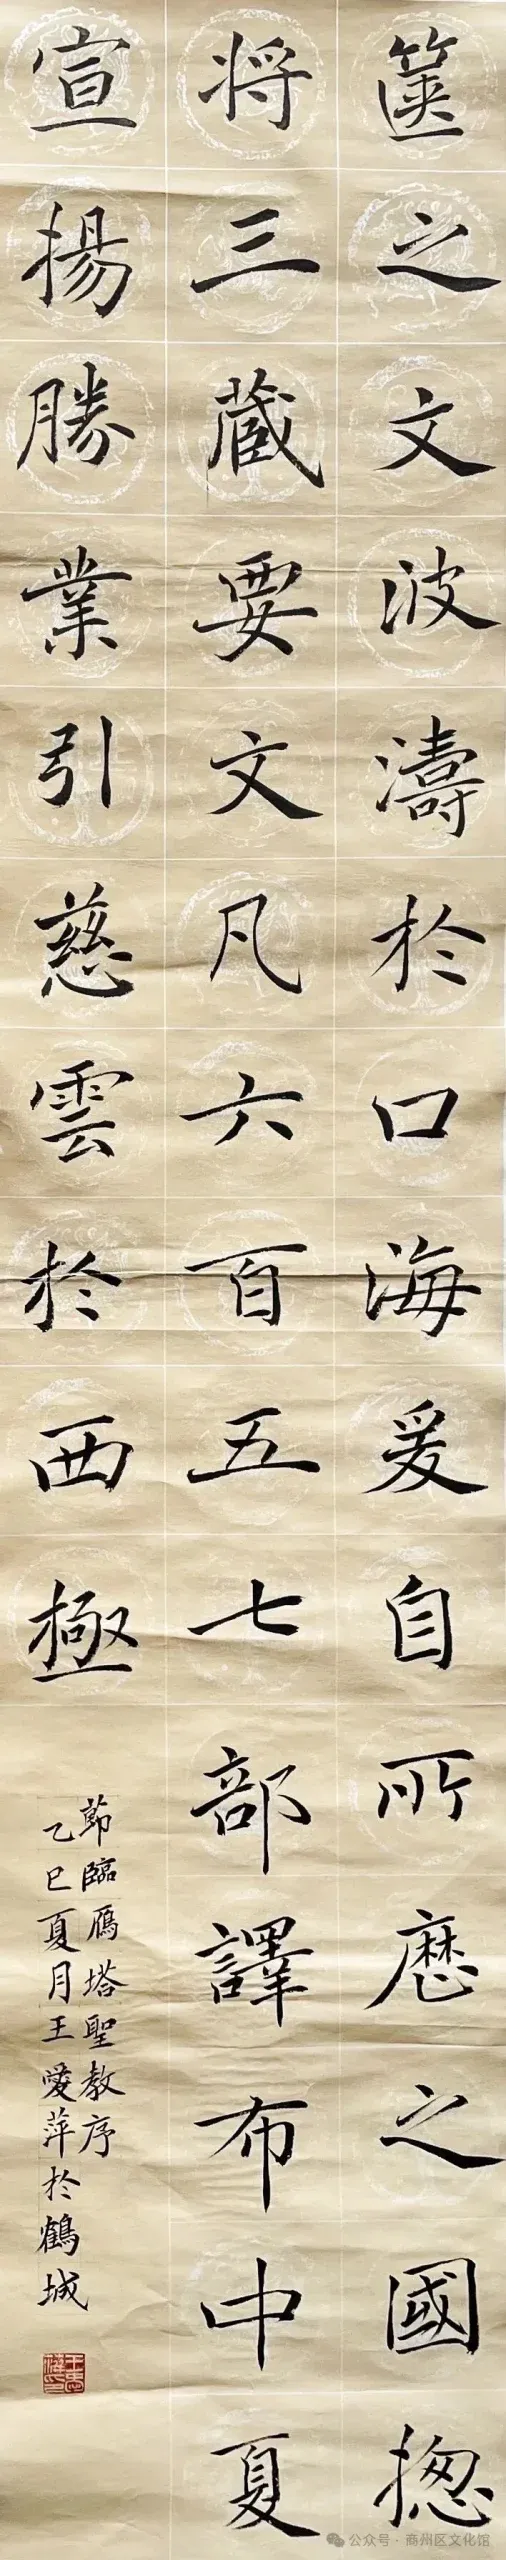 篋之文波濤於口海爰自所歷之國揔
将三藏要文凡六百五七部譯布中夏
宣揚勝業引慈雲於西極
節臨鴈塔聖教序
乙巳夏月王愛萍於鶴城
公众号 · 商州区文化馆